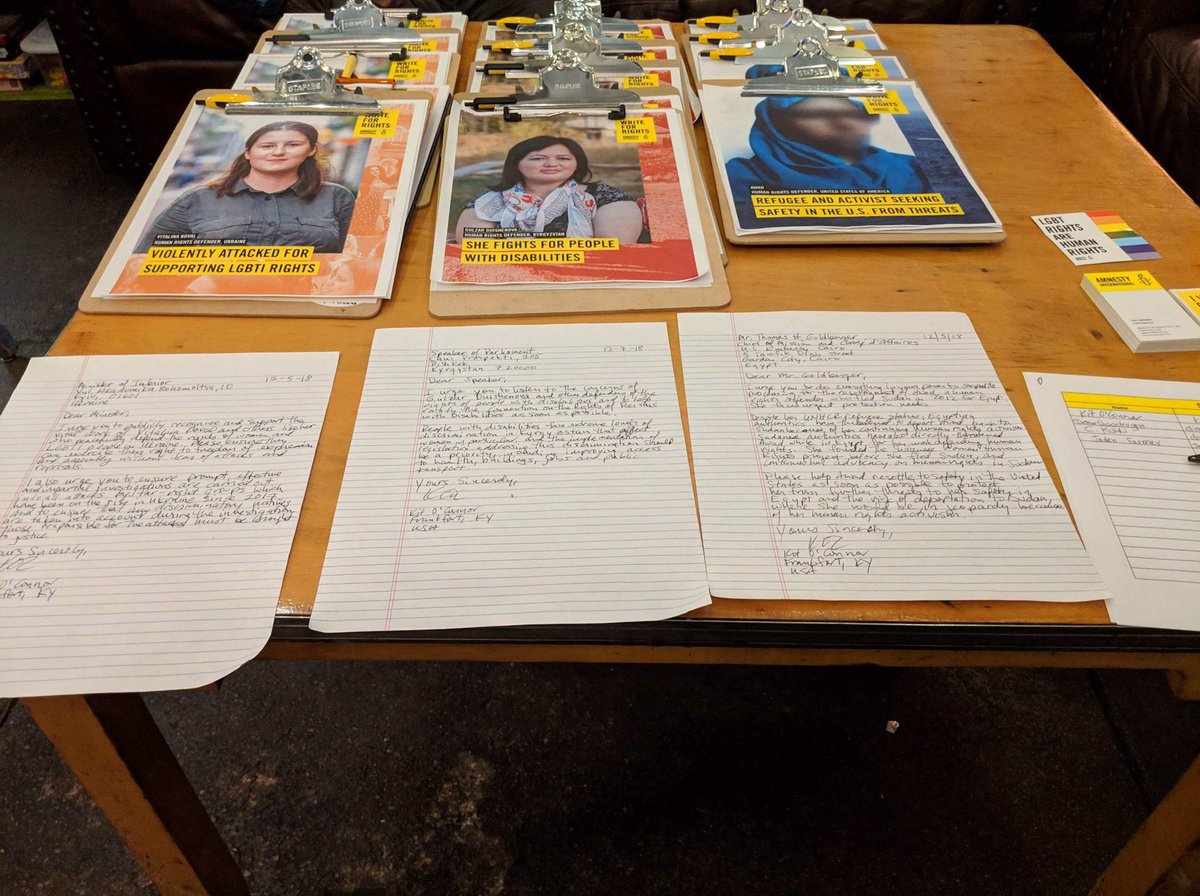 STAPLES
STAPLES
WRITE
FOR
RIGHTS
AMNESTY
VITALINA KOVAL
HUMAN RIGHTS DEFENDER, UKRAINE
VIOLENTLY ATTACKED FOR
SUPPORTING LGBTI RIGHTS
WRITE
FOR
RIGHTS
GULZAR DUISHENOVA
HUMAN RIGHTS DEFENDER, KYRGYZSTAN
SHE FIGHTS FOR PEOPLE
WITH DISABILITIES
WRITE
FOR
RIGHTS
AWAD
HUMAN RIGHTS DEFENDER, UNITED STATES OF AMERICA
REFUGEE AND ACTIVIST SEEKING
SAFETY IN THE U.S. FROM THREATS
LGBT
RIGHTS
ARE
HUMAN
RIGHTS
AMNESTY
INTERNATIONAL
Minister of Interior 12-5-18
Kyiv, 01601
Ukraine
Dear Minister,
I urge you to publicly recognize and support the
who peacefully defend the rights of women and
LGBTI people in Ukraine, and ensure they
can exercise their right to freedom of expression
and assembly without fear of attacks and
reprisals.
I also urge you to ensure prompt, effective
and impartial investigations are carried out
into all attacks by far right groups which
have been on the rise in Ukraine since 2017
and to ensure that any discriminatory motives
are taken into account during the investigation
Those responsible for the attacks must be brought
to justice
Yours Sincerely,
Kit O'Connor
Frankfort, KY
Speaker of Parliament 12-7-18
Chui Prospekti, 205
Bishkek
Kyrgyzstan 720000
Dear Speaker,
I urge you to listen to the concerns of
Gulzar Duishenova and other defenders of the
rights of people with disabilities and to
ratify the Convention on the Rights of Persons
with Disabilities as soon as possible.
People with disabilities face extreme levels of
discrimination, with obstacles that affect
women in particular and the implementation of
legislation addressing this discrimination should
be a priority, including improving access
to health, buildings, jobs and public
transport.
Yours Sincerely,
Kit O'Connor
Frankfort, KY
USA
Mr. Thomas H. Goldberger 12/5/18
Chief of Mission and Chargé d'Affaires
U.S. Embassy Cairo
5 Tawfik Diab Street
Garden City, Cairo
Egypt
Dear Mr. Goldberger,
I urge you to do everything in your power to
processing for the resettlement of Awad, a human
rights defender who fled Sudan in 2012 for Egypt
She is in urgent protection need.
Despite her UNHCR refugee status, Egyptian
authorities have threatened to deport Awad back to
Sudan because of her continuing human rights activism
Sudanese authorities have also directly threatened
Awad while in Egypt for her work defending human
rights. She founded the Nuba Women Human
Rights project before she fled Sudan, and
continued her advocacy on human rights in Sudan
Please help Awad resettle to safety in the United
States as soon as possible to protect
her from further threats to her safety in
Egypt and the risk of deportation to Sudan,
where she would be in jeopardy because
of her human rights activism
Yours Sincerely,
Kit O'Connor
Frankfort, KY
USA
Name
Kit O'Connor